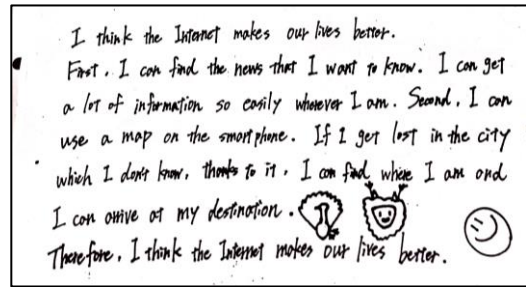 I think the Internet makes our lives better.
First, I can find the news that I want to know. I can get
a lot of information so easily wherever I am. Second, I can
use a map on the smartphone. If I get lost in the city
which I don't know, thanks to it, I can find where I am and
I can arrive at my destination.
Therefore, I think the Internet makes our lives better.